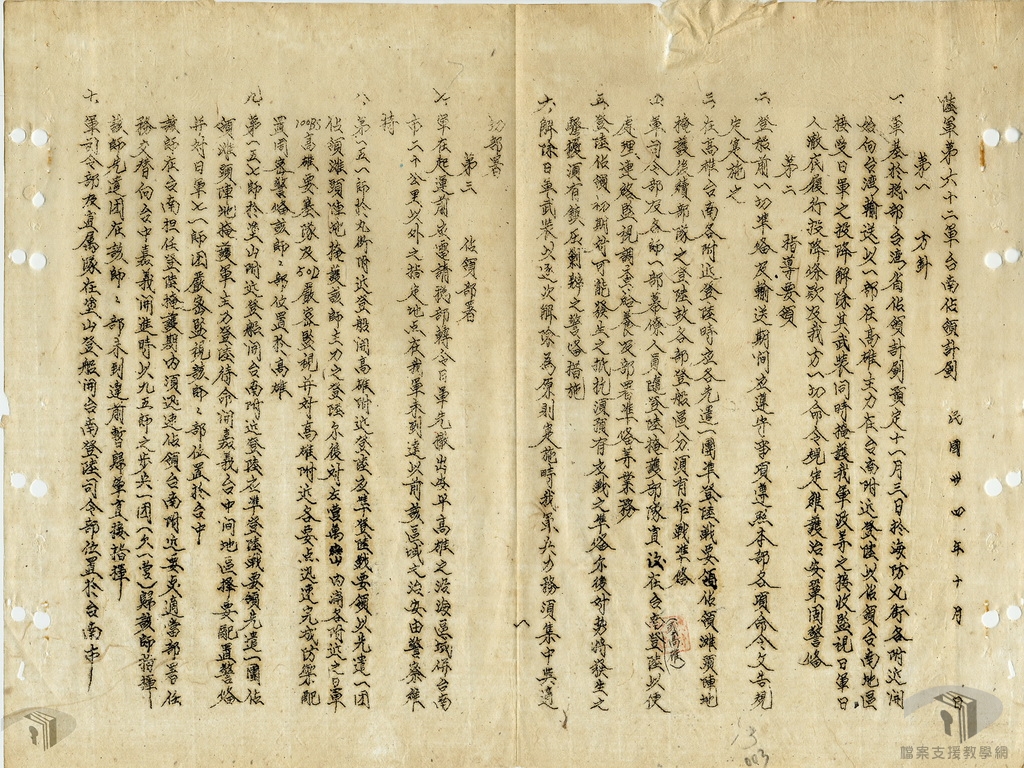 陸軍第六十二軍台南佔領計劃 民國卅四年十月 日
第一 方針
一、軍基於總部台灣省佔領計劃預定十一月三日於海防九街各附近開
始向台灣輸送以一部在高雄主力在台南附近登陸以佔領台南地區
接受日軍之投降解除其武裝同時掩護我軍政等之接收監視日軍日
人澈底履行投降條款及我方一切命令規定維護治安鞏固警備
第二 指導要領
二、登船前一切準備及輸送期間應遵守事項遵照本部各項命令文告規
定實施之
三、在高雄台南各附近登陸時應各先遣一團準登陸戰要領佔領灘頭陣地
掩護後續部隊之登陸故各部登船區分須有作戰準備
四、軍司令部及各師一部幕僚人員隨登陸掩護部隊直後在台南登陸以便
處理連絡監視調查給養及部署準備等業務
五、登陸佔領初期對可能發生之抵抗須預有應戰之準備外後對勢將發生之
騷擾須有鎮壓剿辦之警備措施
六、解除日軍武裝以逐次解除為原則實施時我軍兵力務須集中與適
切部署
第三 佔領部署
七、軍在起運前應電請總部轉令日軍先撤出海軍高雄之沿海區域併台南
市二十公里以外之指定地點在我軍未到達以前該區域之治安由警察維
持
八、第一五一師於九街附近登船開高雄附近登陸應準登陸戰要領以先遣一團
佔領灘頭陣地掩護該師主力之登陸爾後對左營萬 內滿各附近之日軍
100BS高雄要塞隊及50D嚴密監視并對高雄附近各要点迅速完成防禦配
置周密警備該師師部位置於高雄
九、第一五七師於塗山附近登船開台南附近登陸應準登陸戰要領先遣一團佔
領灘頭陣地掩護軍主力登陸待命開嘉義台中間地區擇要配置警備
并對日軍七一師團嚴密監視該師師部位置於台中
該師在台南担任登陸掩護期內須迅速佔領台南附近要点適當部署任
務交替向台中嘉義開進時以九五師之步兵一團(欠一營)歸該師指揮
該師先遣團在該師師部未到達前暫歸軍直接指揮
十、軍司令部及直屬隊在塗山登船開台南登陸司令部位置於台南市
13
003
檔案支援教學網